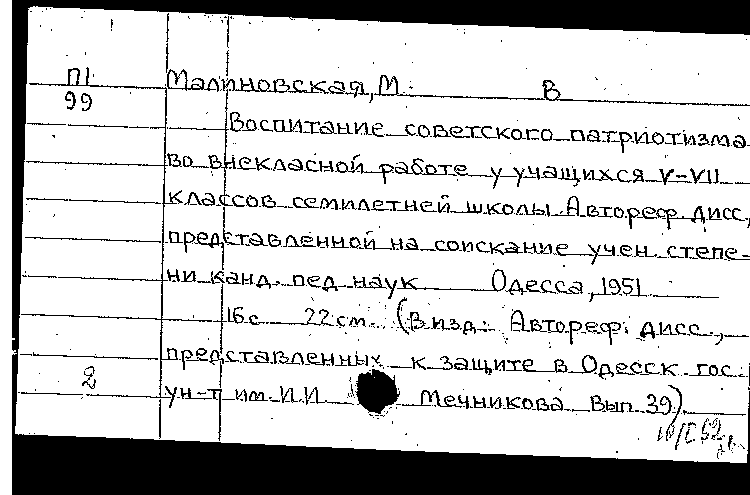 П1 Малиновская, М. В
99
Воспитание советского патриотизма
во внекласной работе у учащихся V-VII
классов семилетней школы. Автореф. дисс.,
представленной на соискание учен. степе-
ни канд. пед. наук Одесса, 1951
16 с 22 см. (В изд.: Автореф. дисс.,
представленных к защите в Одесск. гос.
2 ун-т им. И.И. Мечникова. Вып. 39)